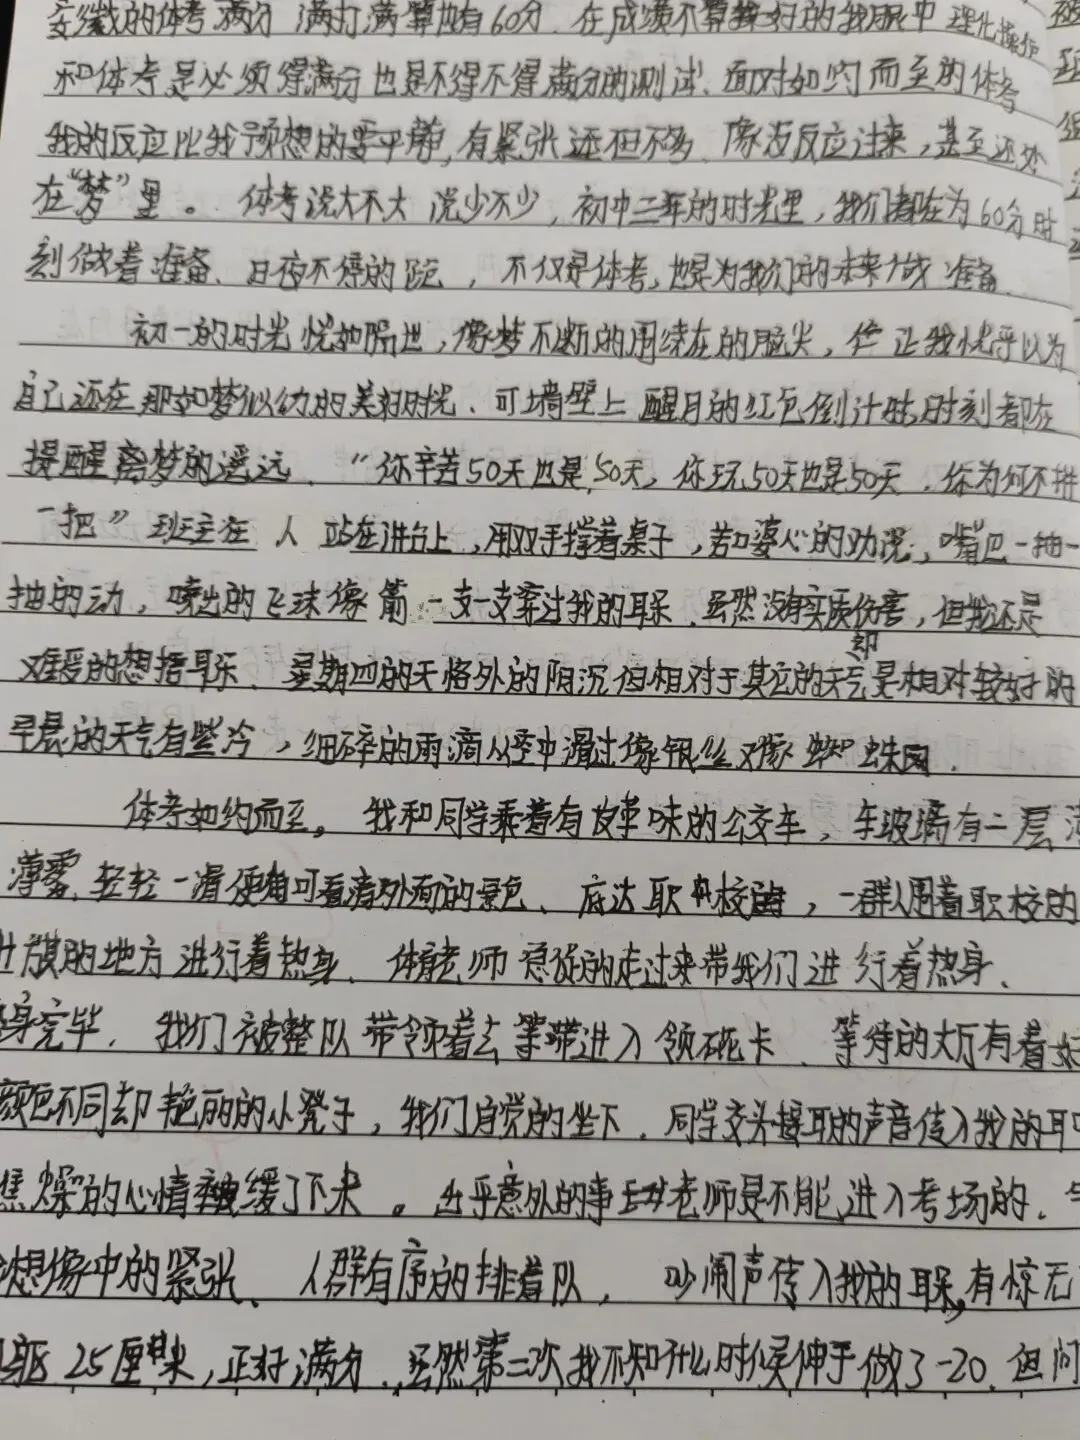 的体考满分 满打满算也有60分.在成绩不算好的我眼中 理化操作
和体考是必须得满分也是不得不得满分的测试.面对如约而至的体考
我的反应比我预想的要平静,有紧张还但不多.像没反应过来,甚至还处
在“梦”里。体考说大不大 说少不少,初中三年的时光里,我们都在为60分时
刻做着准备.日夜不停的 ,不仅是体考,也是为我们的未来做准备.
初一的时光恍如隔世,像梦不断的围绕在的脑尖,让我恍乎以为
自己还在那如梦似幻的美好时光.可墙壁上醒目的红色倒计时,时刻都在
提醒离梦的遥远.“你辛苦50天也是50天,你玩50天也是50天,你为何不拼
一把”班主任 人 站在讲台上,用双手撑着桌子,苦口婆心的劝说,嘴巴一抽一
抽的动,喷出的飞沫像箭一支一支穿过我的耳朵.虽然没有实质伤害,但我还是
难受的想捂耳朵.星期四的天格外的阴沉但相对于其它的天气却是相对较好的
早晨的天气有些冷,细碎的雨滴从空中滑过像银丝又像蜘蛛网.
体考如约而至。我和同学乘着有皮革味的公交车,车玻璃有一层
薄雾.轻轻一滑便可看清外面的景色.底达职中校,一群人围着职校的
旗的地方进行着热身.体育老师 的走过来带我们进行着热身.
身完毕.我们被整队带领着去等带进入领 卡.等待的大厅有着
颜色不同却艳丽的小凳子,我们自觉的坐下.同学交头接耳的声音传入我的耳
焦燥的心情缓了下来。出乎意外的事 老师是不能进入考场的.
想像中的紧张、人群有序的排着队, 吵闹声传入我的耳朵,有惊无
躯25厘米,正好满分.虽然第二次我不知什么时候伸手做了-20.但